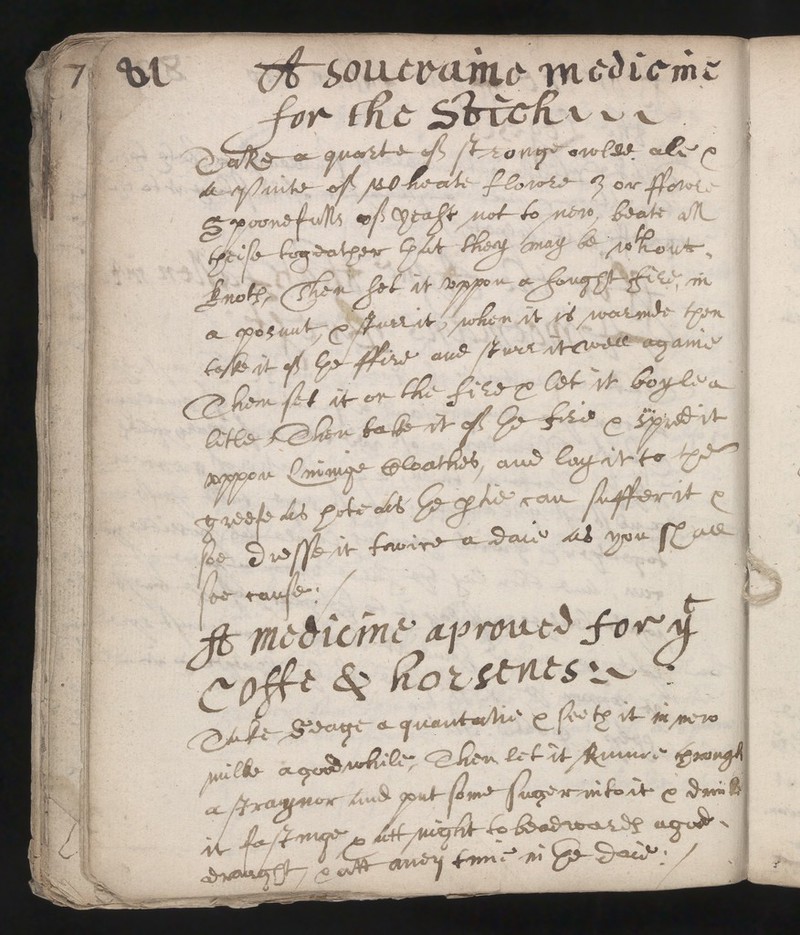 7 81 A soueraine medicine
for the Stich
Take a quarte off stronge owlde ale &
a Pinte off Wheate flowre 3 or ffowre
Spoonefulls off yeast not to new, beate all
theise togeather that they may be wthout
knots, Then set it vppon a sought fire, in
a posnut, & sturr it, when it is warmde then
take it off the ffire and sturr it well againe
Then set it on the fire & let it boyle a
litle, Then take it off the fire & spred it
vppon linninge Cloathes, and lay it to the
greefe as hote as the ptie can suffer it &
soe dresse it twice a daie as you shall
see cause:/
A medicine aproued for yt
Coffe & horsenes:
Take Seage a quantatie & seeth it in new
milke a good while, Then let it Runne through
a straynor and put some Suger into it & drinke
it fastinge & att night to beadwards a good
draught, & att aney time in the daie:/